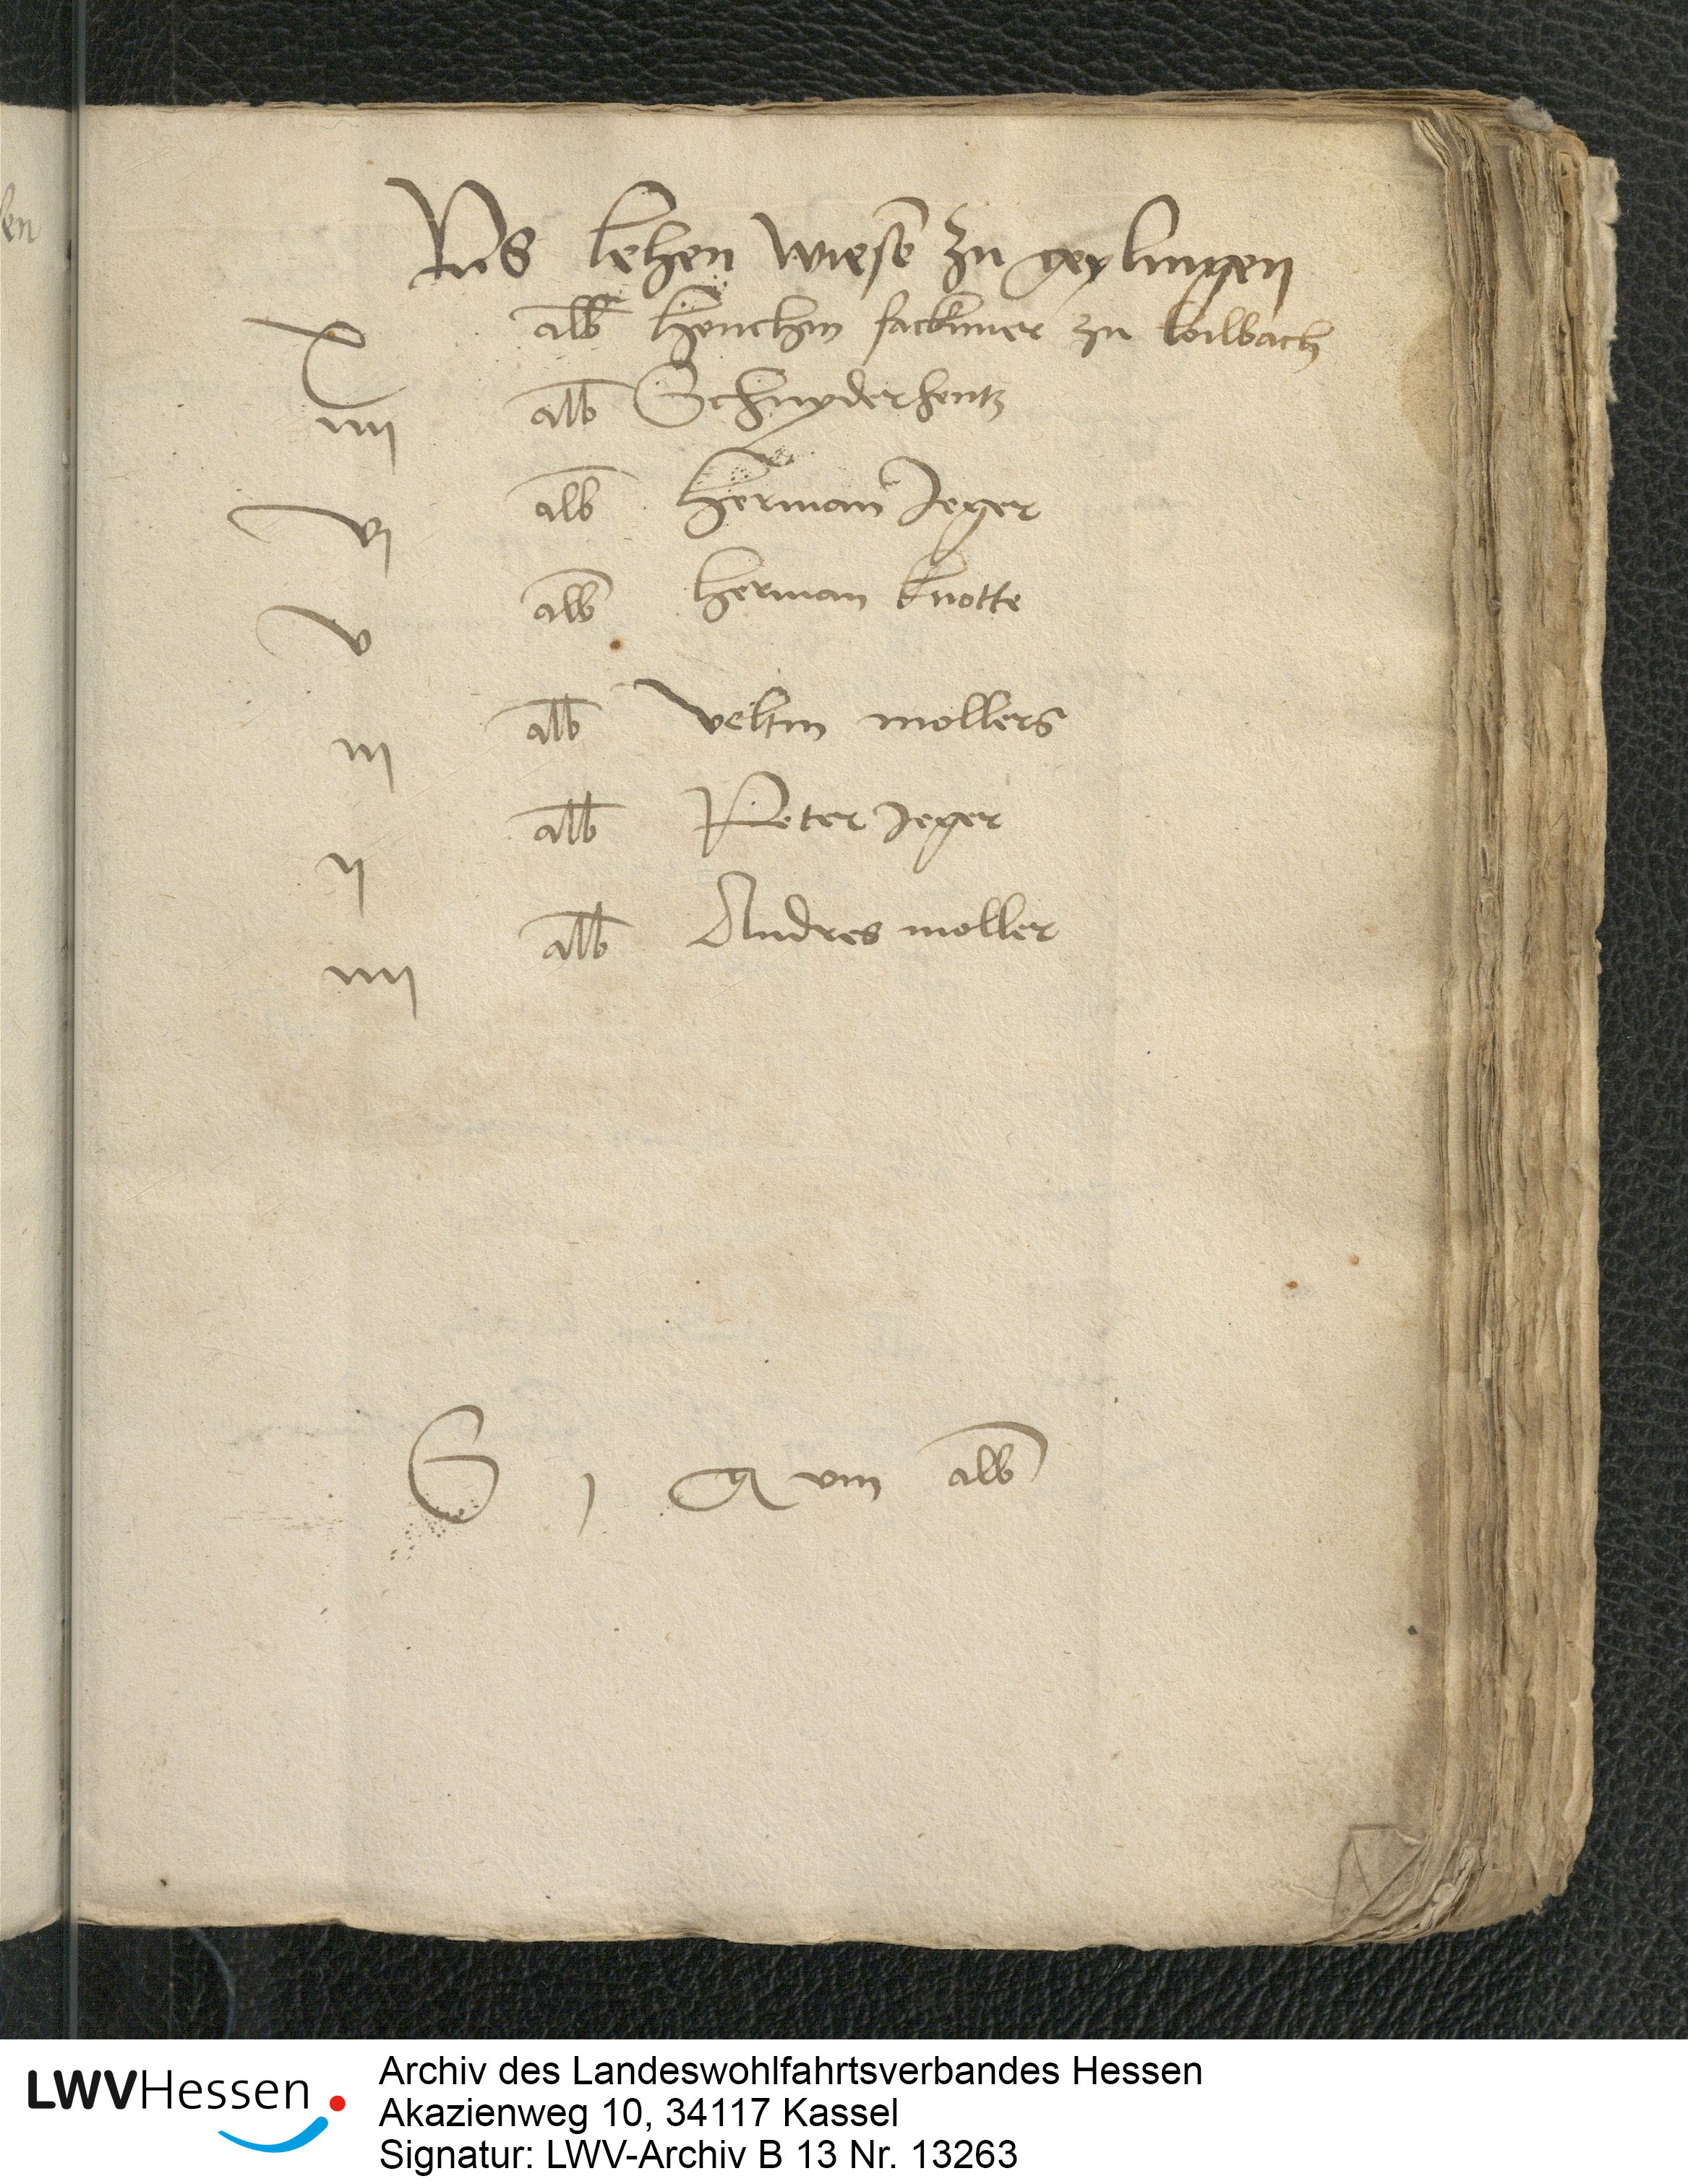 en
Vs lehen wiese zu geylingen
x alb Henchin fackiner zu loilbach
iiij alb Schnyderhentz
vj alb Herman Jeger
v alb Herman knotte
iij alb veltin mollers
ij alb Peter Jeger
iiij alb Andres moller
S j g viii alb
LWVHessen
Archiv des Landeswohlfahrtsverbandes Hessen
Akazienweg 10, 34117 Kassel
Signatur: LWV-Archiv B 13 Nr. 13263